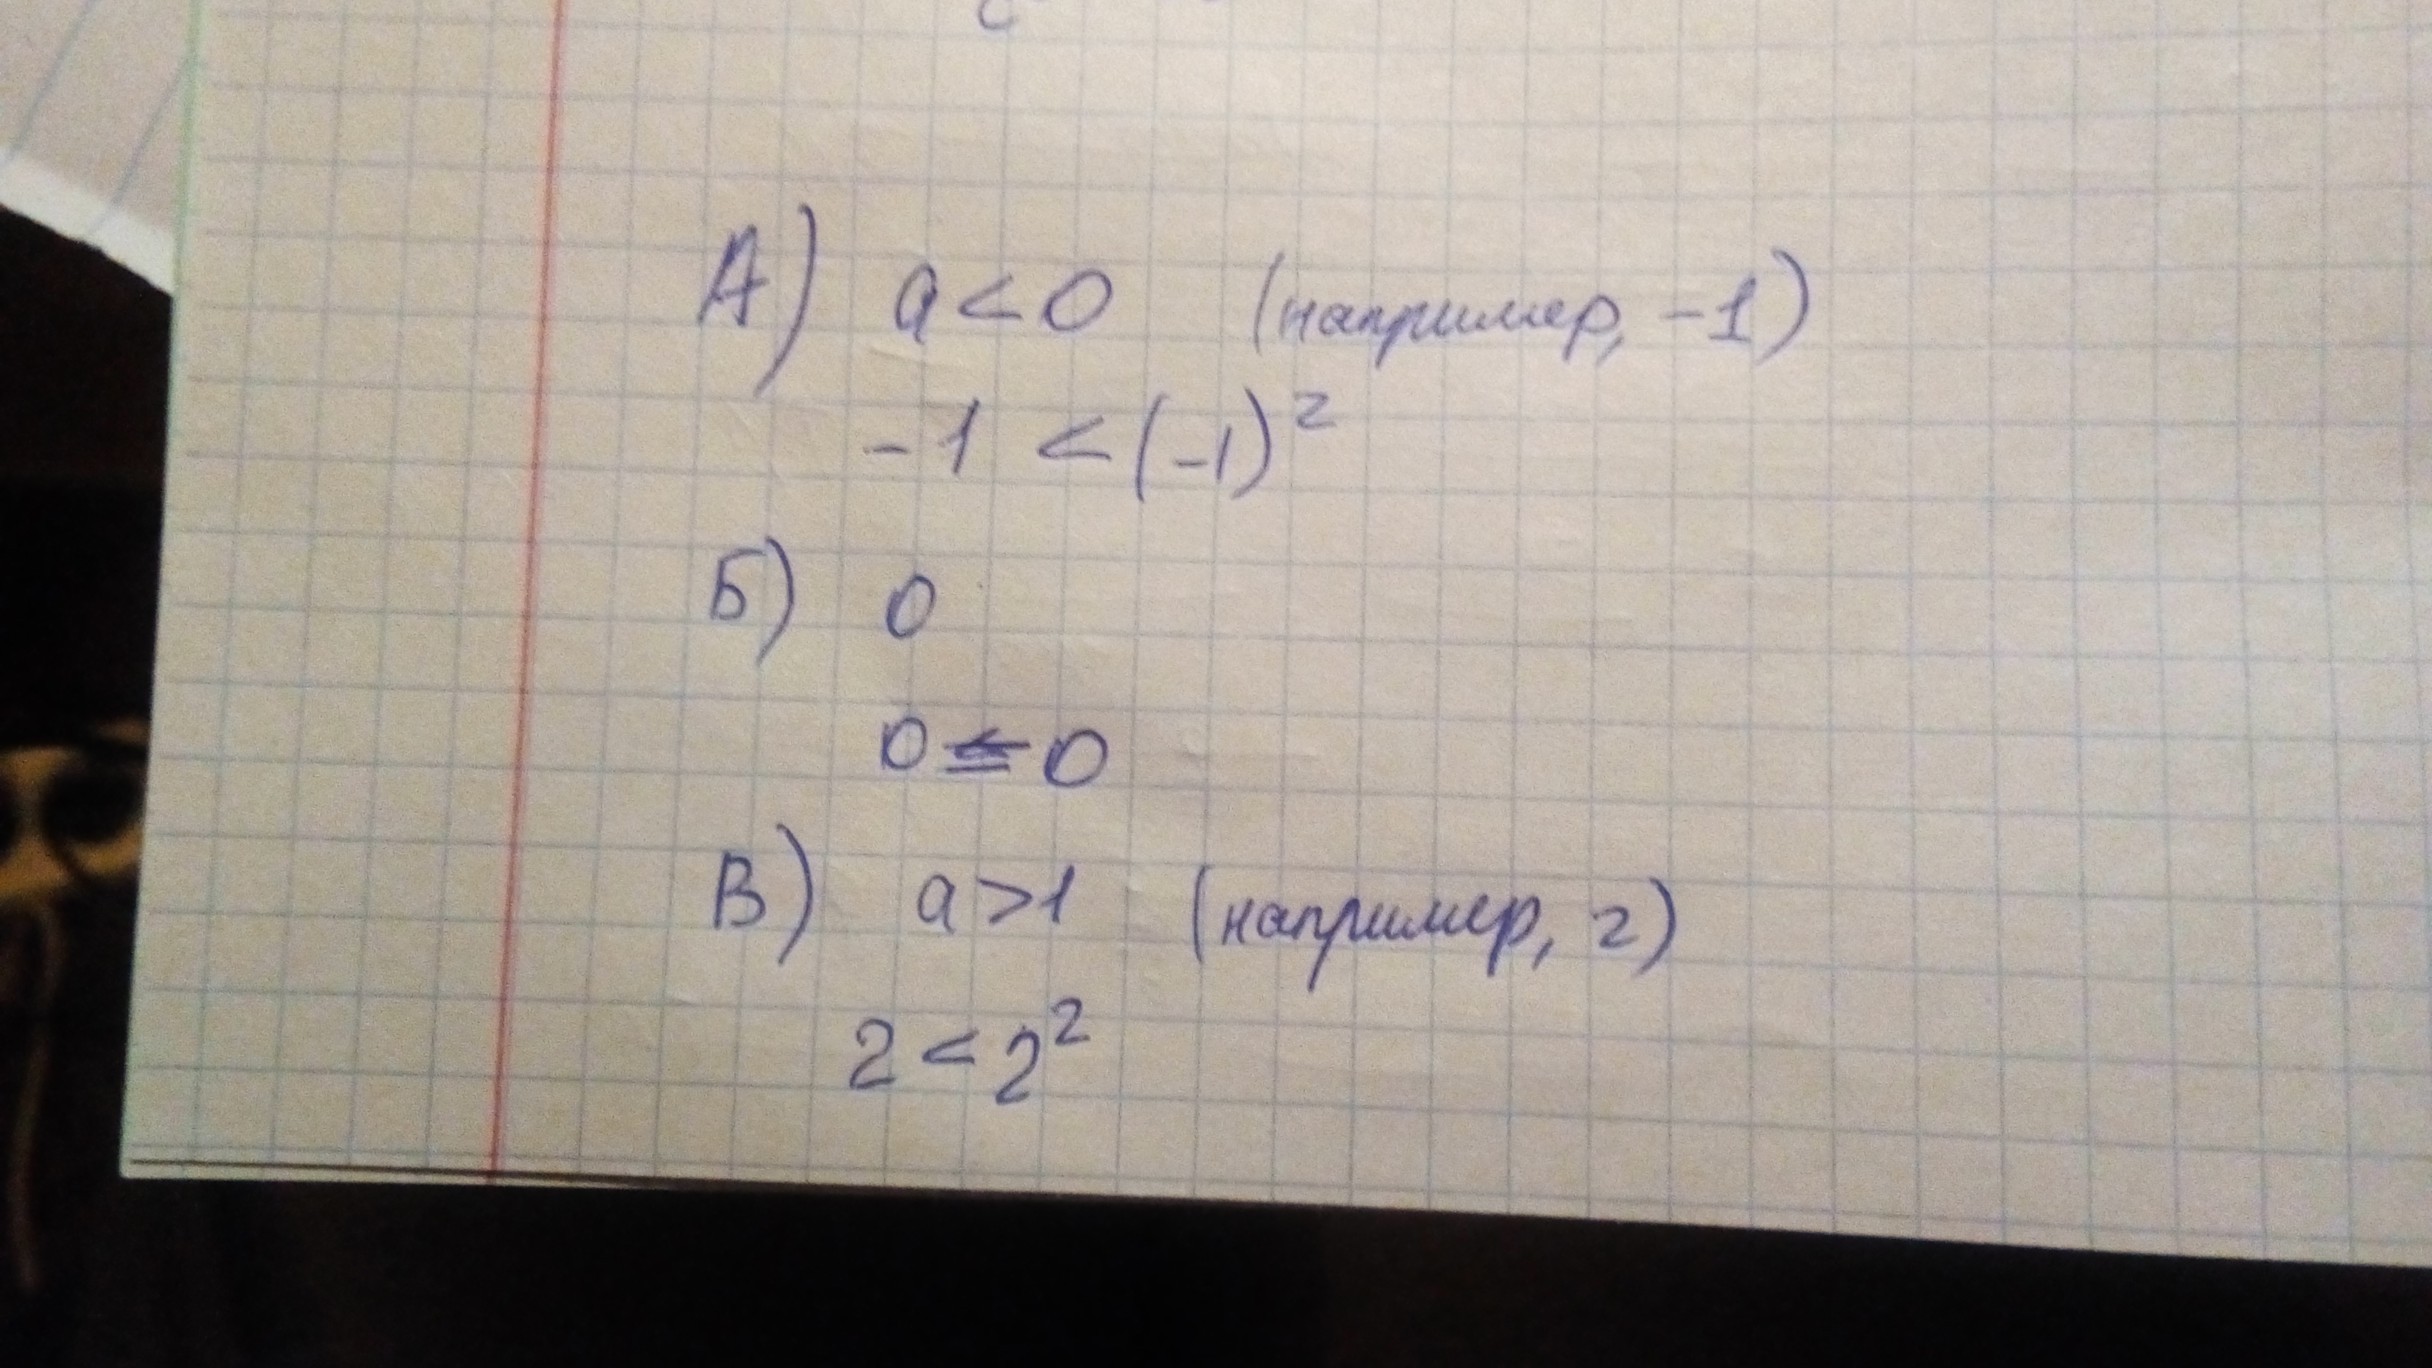 А) a < 0 (например, -1)
-1 < (-1)²
Б) 0
0 ≤ 0
В) a > 1 (например, 2)
2 < 2²